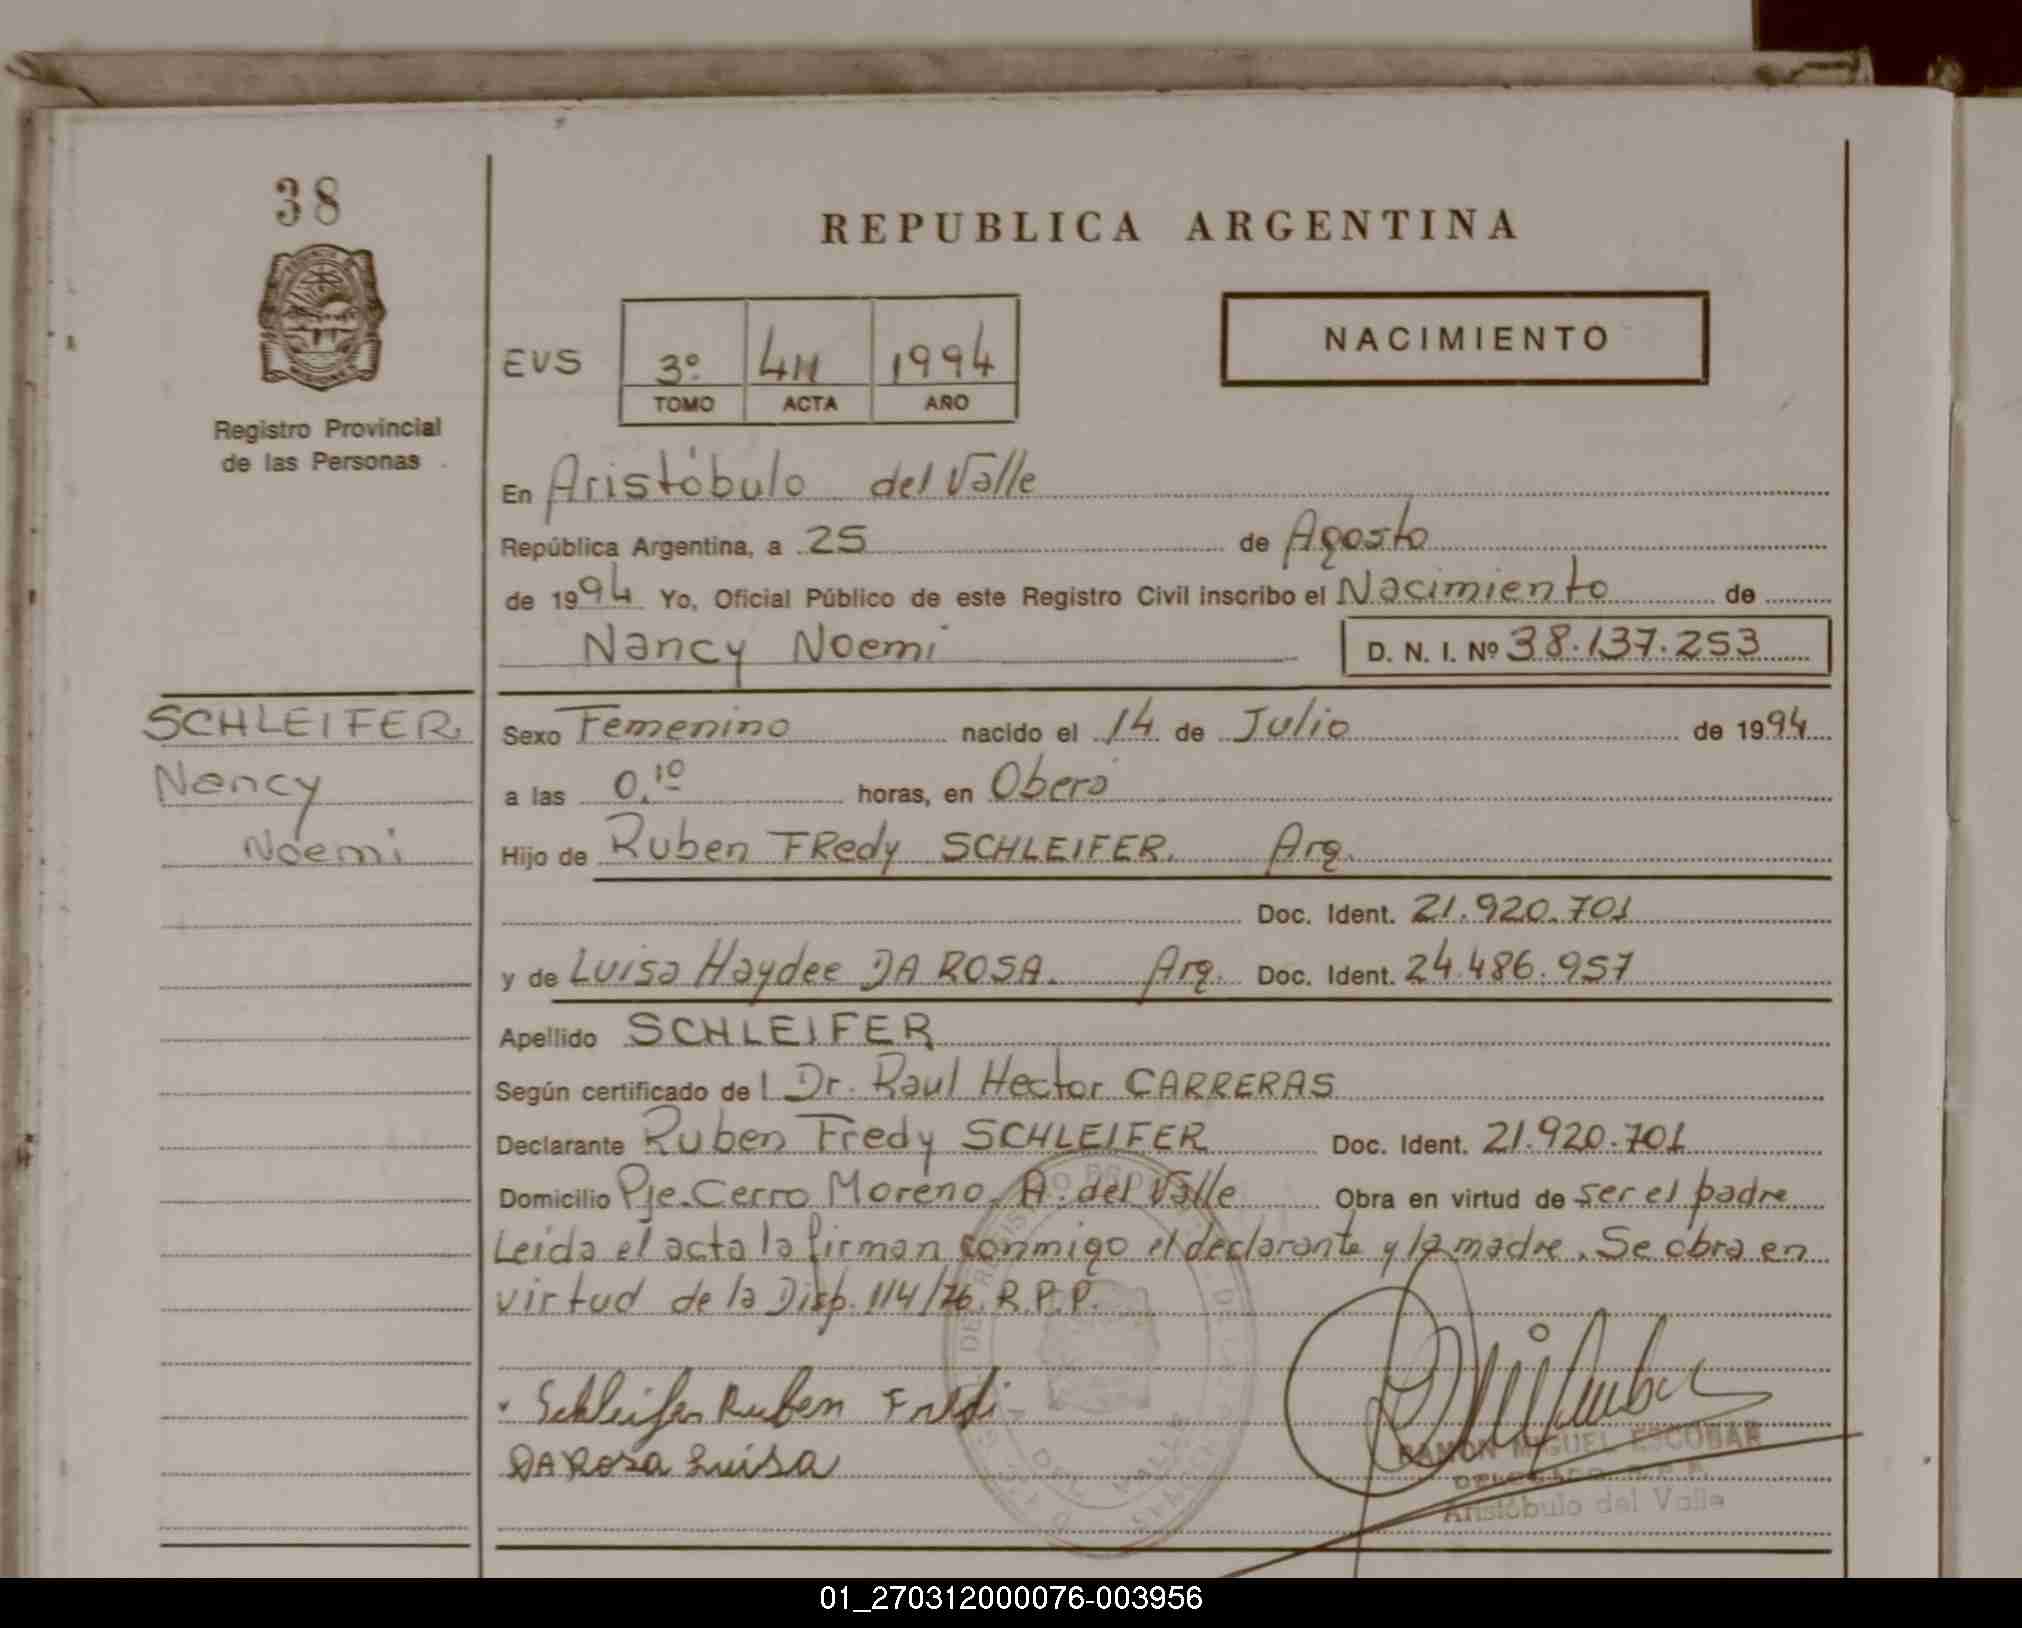 38
REPUBLICA ARGENTINA
NACIMIENTO
EVS 3º 411 1994
TOMO ACTA AÑO
Registro Provincial
de las Personas
En Aristóbulo del Valle
República Argentina, a 25 de Agosto
de 1994 Yo, Oficial Público de este Registro Civil inscribo el Nacimiento de
Nancy Noemi D. N. I. Nº 38.137.253
SCHLEIFER
Nancy
Noemi
Sexo Femenino nacido el 14 de Julio de 1994
a las 0.10 horas, en Oberá
Hijo de Ruben FRedy SCHLEIFER. Arg.
Doc. Ident. 21.920.701
y de Luisa Haydee DA ROSA. Arg. Doc. Ident. 24.486.957
Apellido SCHLEIFER
Según certificado de l Dr. Raul Hector CARRERAS
Declarante Ruben Fredy SCHLEIFER Doc. Ident. 21.920.701
Domicilio Pje. Cerro Moreno. A. del Valle Obra en virtud de ser el padre
Leida el acta la firman conmigo el declarante y la madre. Se obra en
virtud de la Disp. 114/76. R.P.P.
Schleifer Ruben Fredi
DA Rosa Luisa
RAMON MIGUEL ESCOBAR
Aristóbulo del Valle
01_270312000076-003956